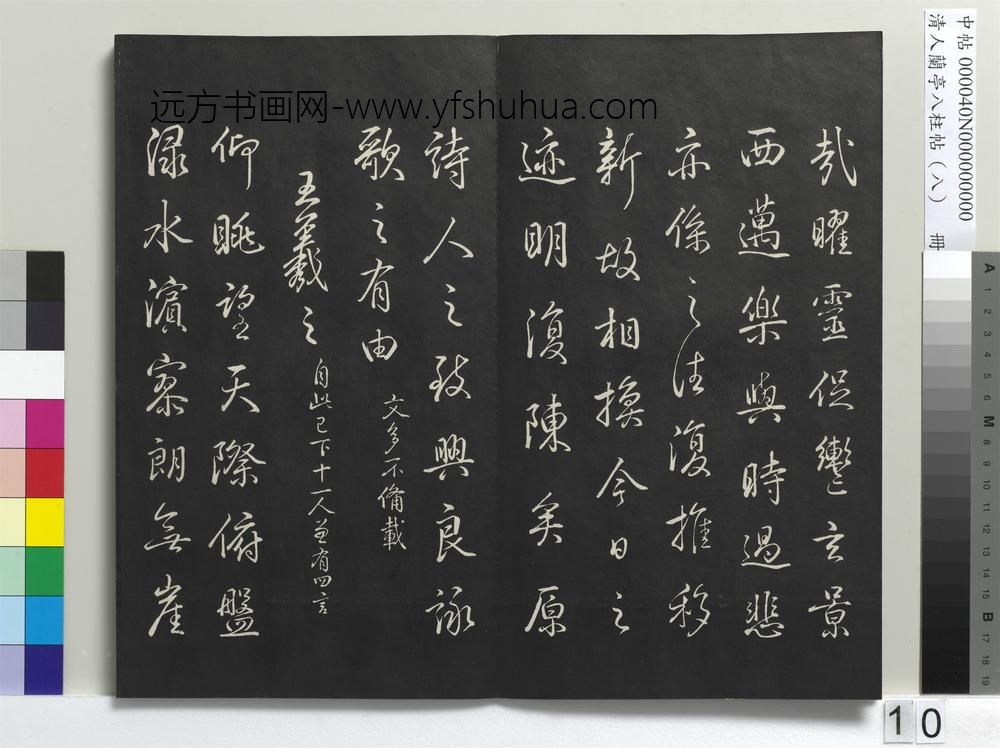 中帖 000040N00000000
清人蘭亭八柱帖（八） 冊
远方书画网-www.yfshuhua.com
哉曜靈促轡玄景
西邁樂與時過悲
亦係之往復推移
新故相換今日之
迹明復陳矣原
詩人之致興良詠
歌之有由 文多不備載
王羲之 自此已下十一人並有四言
仰眺望天際俯盤
淥水濱寥朗無崖
A 1 2 3 4 5 6 M 8 9 10 11 12 13 14 15 B 17 18 19
10